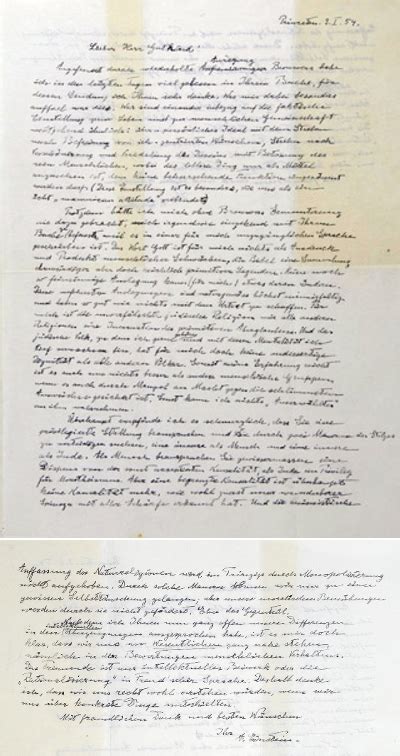 Princeton. 3. I. 54.
Lieber Herr Gutkind!
Angefeuert durch wiederholte Anregung Brouwers habe
ich in den letzten Tagen viel gelesen in Ihrem Buche, für
dessen Sendung ich Ihnen sehr danke. Was mir dabei besonders
auffiel war dies. Wir sind einander inbezug auf die faktische
Einstellung zum Leben und zur menschlichen Gemeinschaft
weitgehend ähnlich: über-persönliches Ideal mit dem Streben
nach Befreiung von ich-zentrierten Wünschen, Streben nach
Verschönerung und Veredelung des Daseins mit Betonung des
rein Menschlichen, wobei das leblose Ding nur als Mittel
anzusehen ist, dem keine beherrschende Funktion eingeräumt
werden darf. (Diese Einstellung ist es besonders, die uns als ein
echt „unamerican attitude" verbindet)
Trotzdem hätte ich mich ohne Brouwers Ermunterung
nie dazu gebracht, mich irgendwie eingehend mit Ihrem
Buche zu befassen, weil es in einer für mich unzugänglichen Sprache
geschrieben ist. Das Wort Gott ist für mich nichts als Ausdruck
und Produkt menschlicher Schwächen, die Bibel eine Sammlung
ehrwürdiger aber doch reichlich primitiver Legenden. Keine noch
so feinsinnige Auslegung kann (für mich) etwas daran ändern.
Diese verfeinerten Auslegungen sind naturgemäss höchst mannigfaltig
und haben so gut wie nichts mit dem Urtext zu schaffen. Für
mich ist die unverfälschte jüdische Religion wie alle anderen
Religionen eine Incarnation des primitiven Aberglaubens. Und das
jüdische Volk, zu dem ich gern gehöre und mit dessen Mentalität ich
tief verwachsen bin, hat für mich doch keine andersartige
Dignität als alle anderen Völker. Soweit meine Erfahrung reicht
ist es auch um nichts besser als andere menschliche Gruppen
wenn es auch durch Mangel an Macht gegen die schlimmsten
Auswüchse gesichert ist. Sonst kann ich nichts „Auserwähltes"
an ihm wahrnehmen.
Überhaupt empfinde ich es schmerzlich, dass Sie eine
privilegierte Stellung beanspruchen und sie durch zwei Mauern des Stolzes
zu verteidigen suchen, eine äussere als Mensch und eine innere
als Jude. Als Mensch beanspruchen Sie gewissermassen einen
Dispens von der sonst acceptierten Kausalität, als Jude ein Privileg
für Monotheismus. Aber eine begrenzte Kausalität ist überhaupt
keine Kausalität mehr, wie wohl zuerst unser wunderbarer
Spinoza mit aller Schärfe erkannt hat. Und die animistische
Auffassung der Naturreligionen wird im Prinzip durch Monopolisierung
nicht aufgehoben. Durch solche Mauern können wir nur zu einer
gewissen Selbsttäuschung gelangen, aber unsere moralischen Bemühungen
werden durch sie nicht gefördert. Eher das Gegenteil.
Nachdem ich Ihnen nun ganz offen unsere Differenzen
in den intellektuellen Überzeugungen ausgesprochen habe, ist es mir doch
klar, dass wir uns im Wesentlichen ganz nahe stehen,
nämlich in den Bewertungen menschlichen Verhaltens.
Das Trennende ist nur intellektuelles Beiwerk oder die
„Rationalisierung" in Freud'scher Sprache. Deshalb denke
ich, dass wir uns recht wohl verstehen würden, wenn wir
uns über konkrete Dinge unterhielten.
Mit freundlichem Dank und besten Wünschen
Ihr A. Einstein.